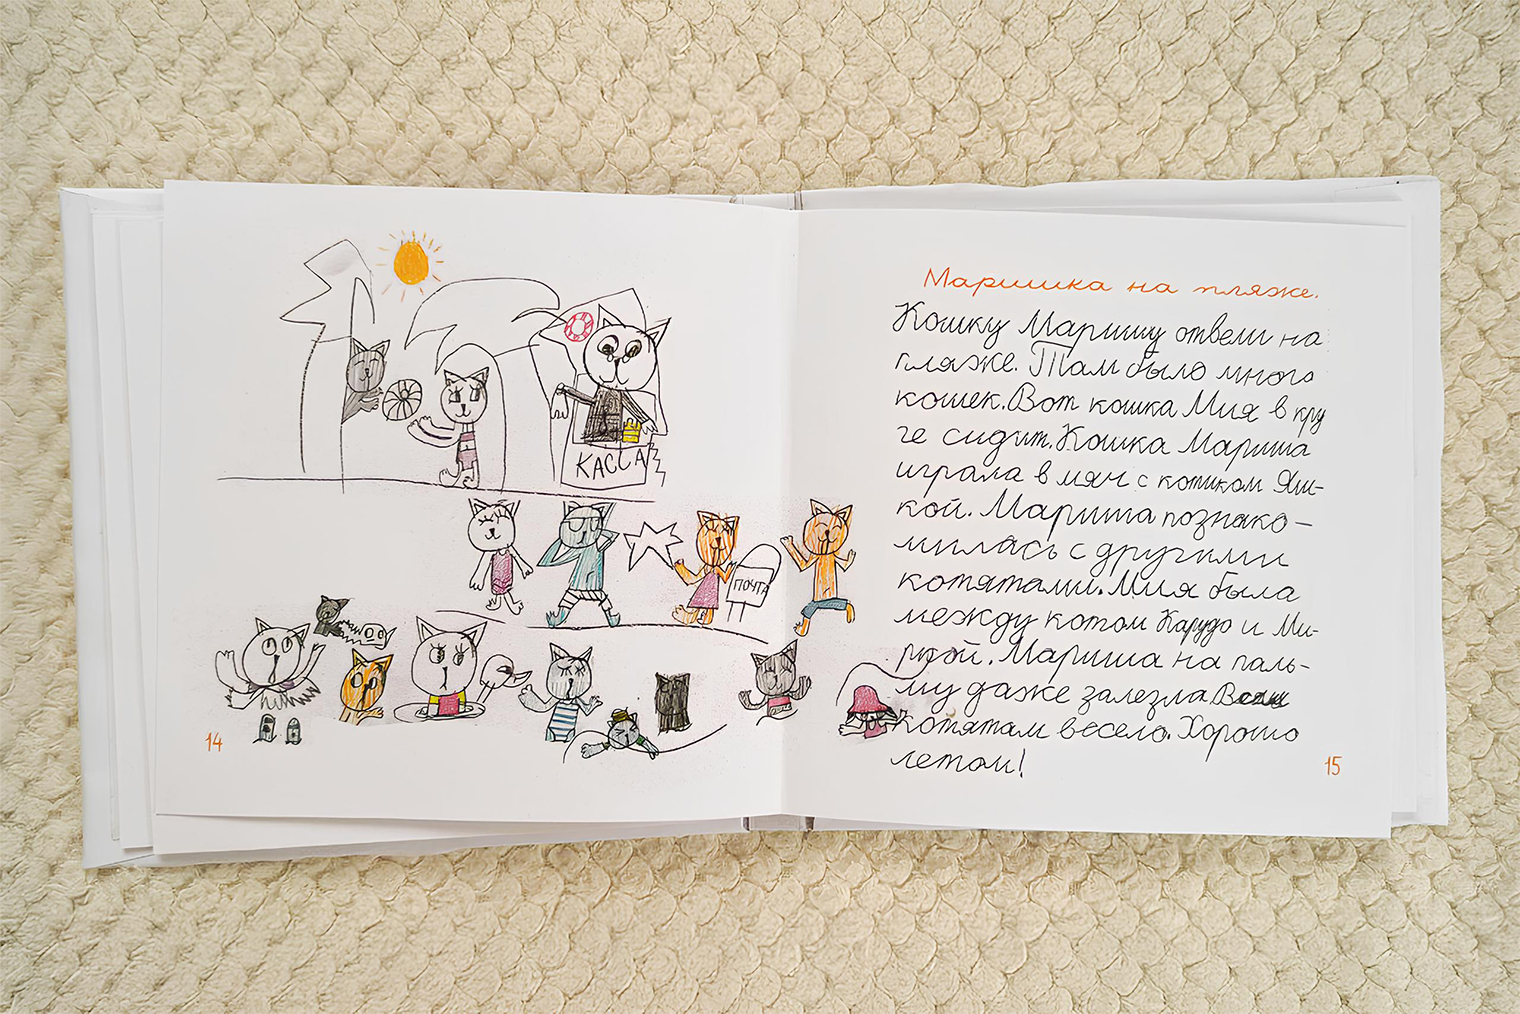 КАССА
ПОЧТА
14
Маришка на пляже.
Кошку Маришу отвели на
пляже. Там было много
кошек. Вот кошка Мия в кру
ге сидит. Кошка Мариша
играла в мяч с котиком Яш-
кой. Мариша познако-
милась с другими
котятами. Мия была
между котом Карудо и Ми-
рой. Мариша на паль-
му даже залезла. Всем
котятам весело. Хорошо
летом!
15